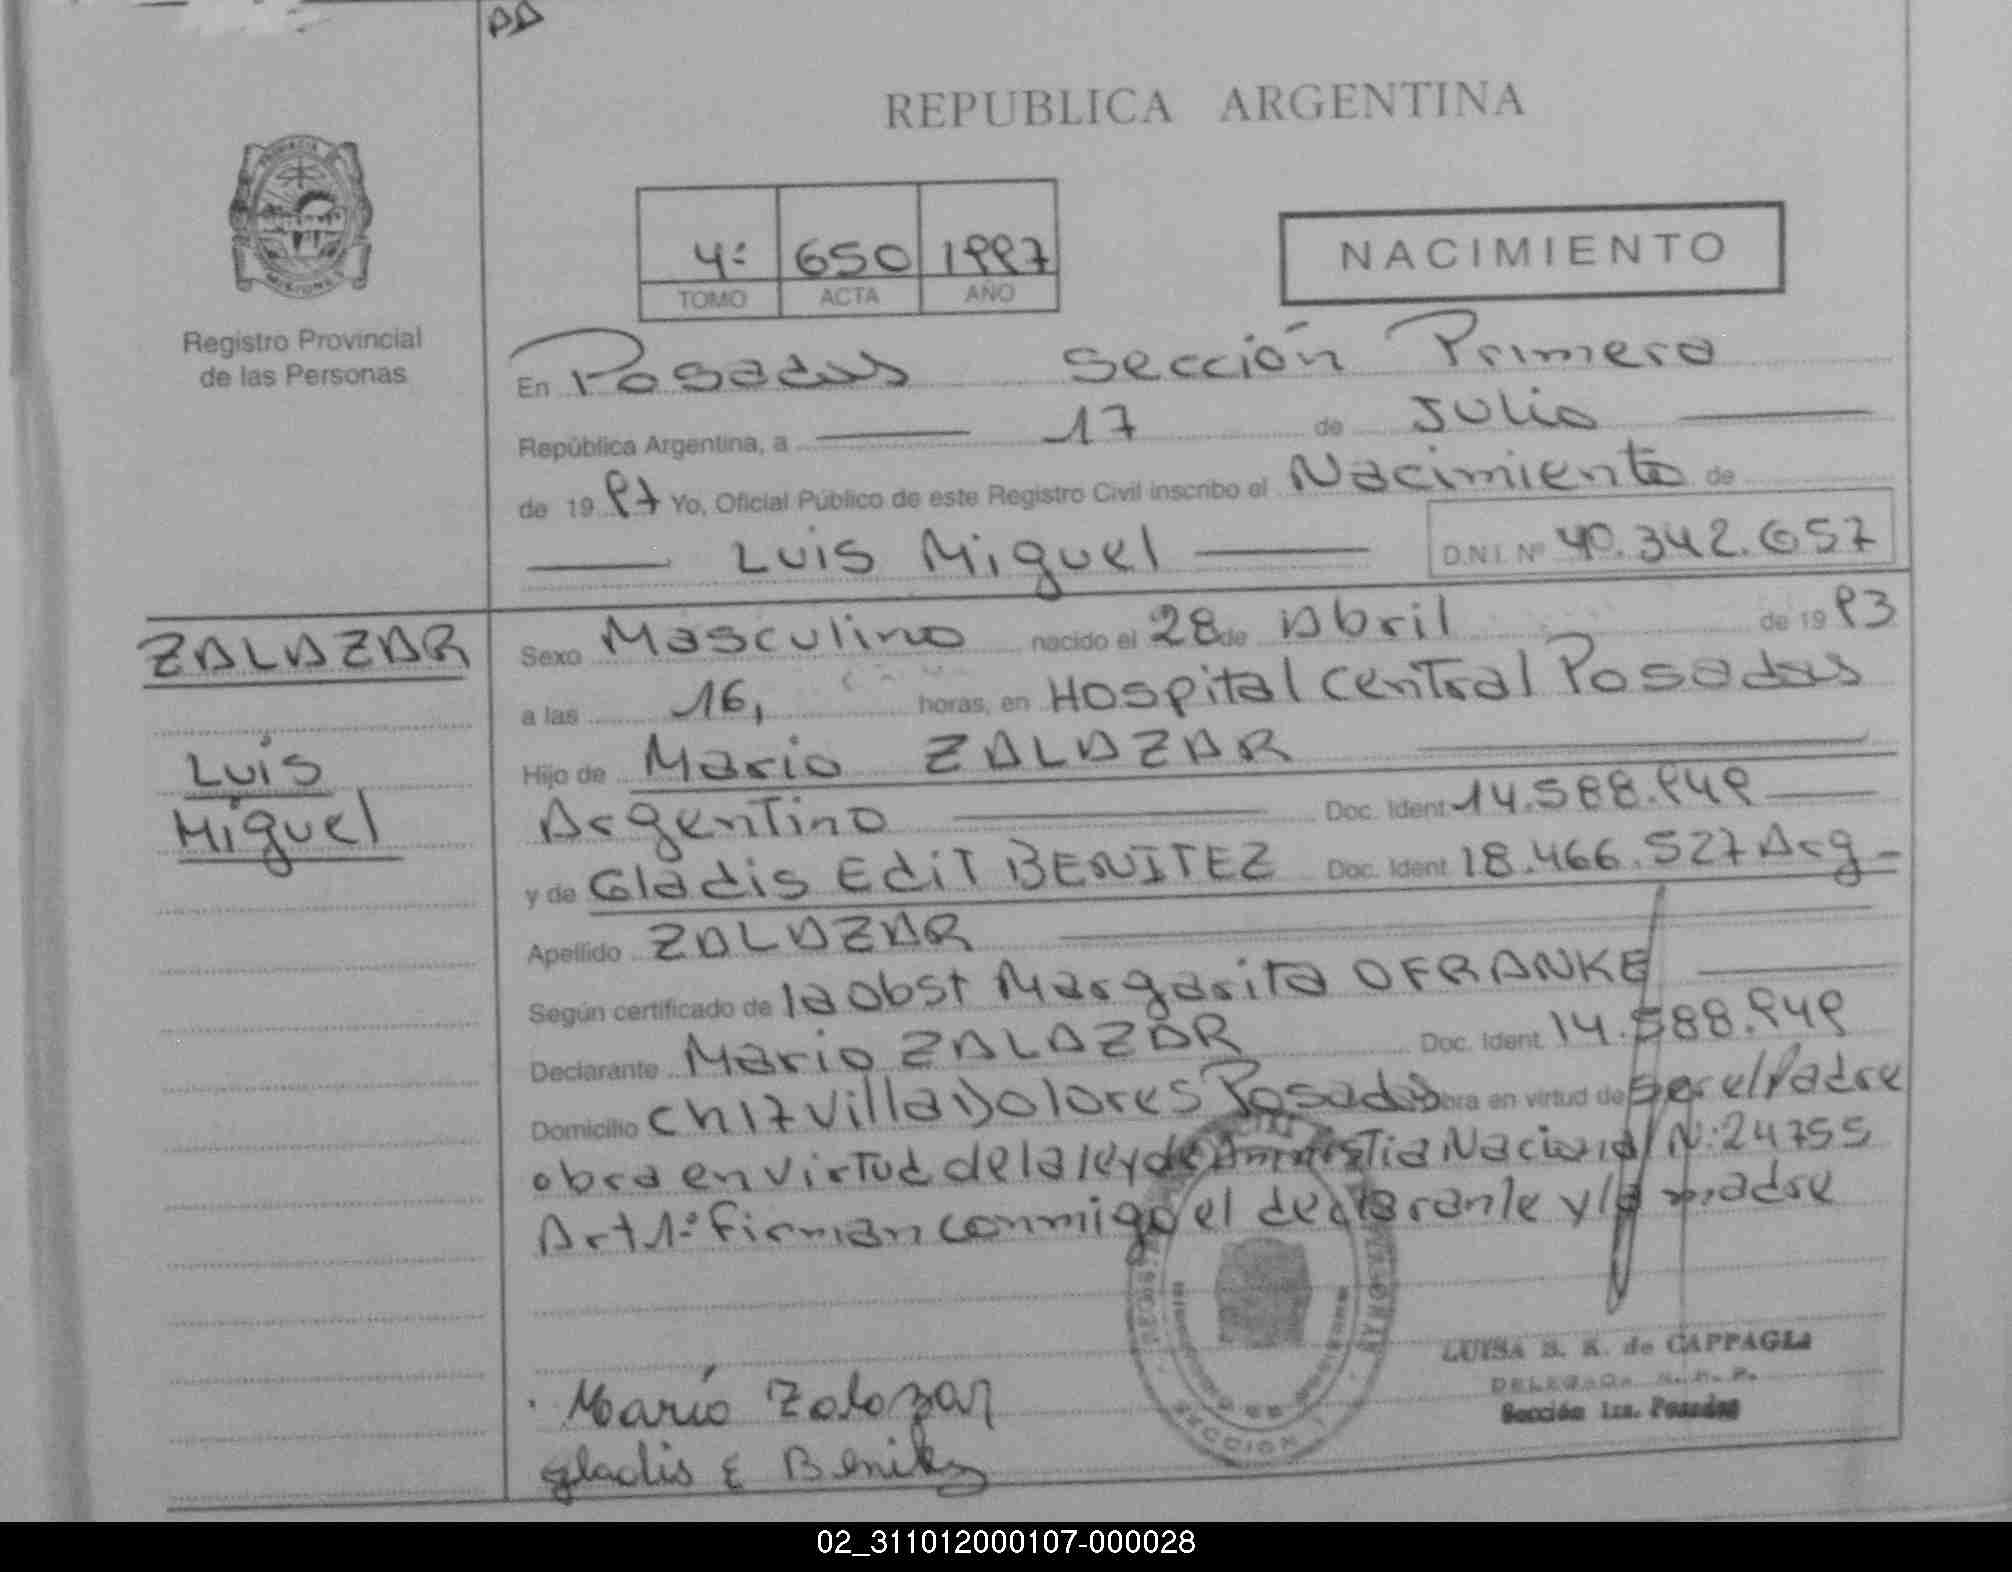 REPUBLICA ARGENTINA
4º 650 1997
TOMO ACTA AÑO
NACIMIENTO
PROVINCIA
MISIONES
Registro Provincial
de las Personas
En Posadas Sección Primera
República Argentina, a 17 de Julio
de 19 97 Yo, Oficial Público de este Registro Civil inscribo el Nacimiento de
Luis Miguel D.N.I. Nº 40.342.657
ZALAZAR
Luis
Miguel
Sexo Masculino nacido el 28 de Abril de 19 93
a las 16, horas, en Hospital Central Posadas
Hijo de Mario ZALAZAR
Argentino Doc. Ident. 14.588.949
y de Gladis Edit BENITEZ Doc. Ident. 18.466.527 Arg
Apellido ZALAZAR
Según certificado de la Obst Margarita O FRANKE
Declarante Mario ZALAZAR Doc. Ident. 14.588.949
Domicilio Ch 17 Villa Dolores Posadas obra en virtud de ser el Padre
obra en virtud de la ley de Amnistia Nacional N: 24755
Art 1º Firman conmigo el declarante y la madre
Mario Zalazar
gladis E Benitez
SECCION 1
LUISA S. K. de CAPPAGLI
DELEGADA R. P. P.
Sección 1ra. Posadas
02_311012000107-000028